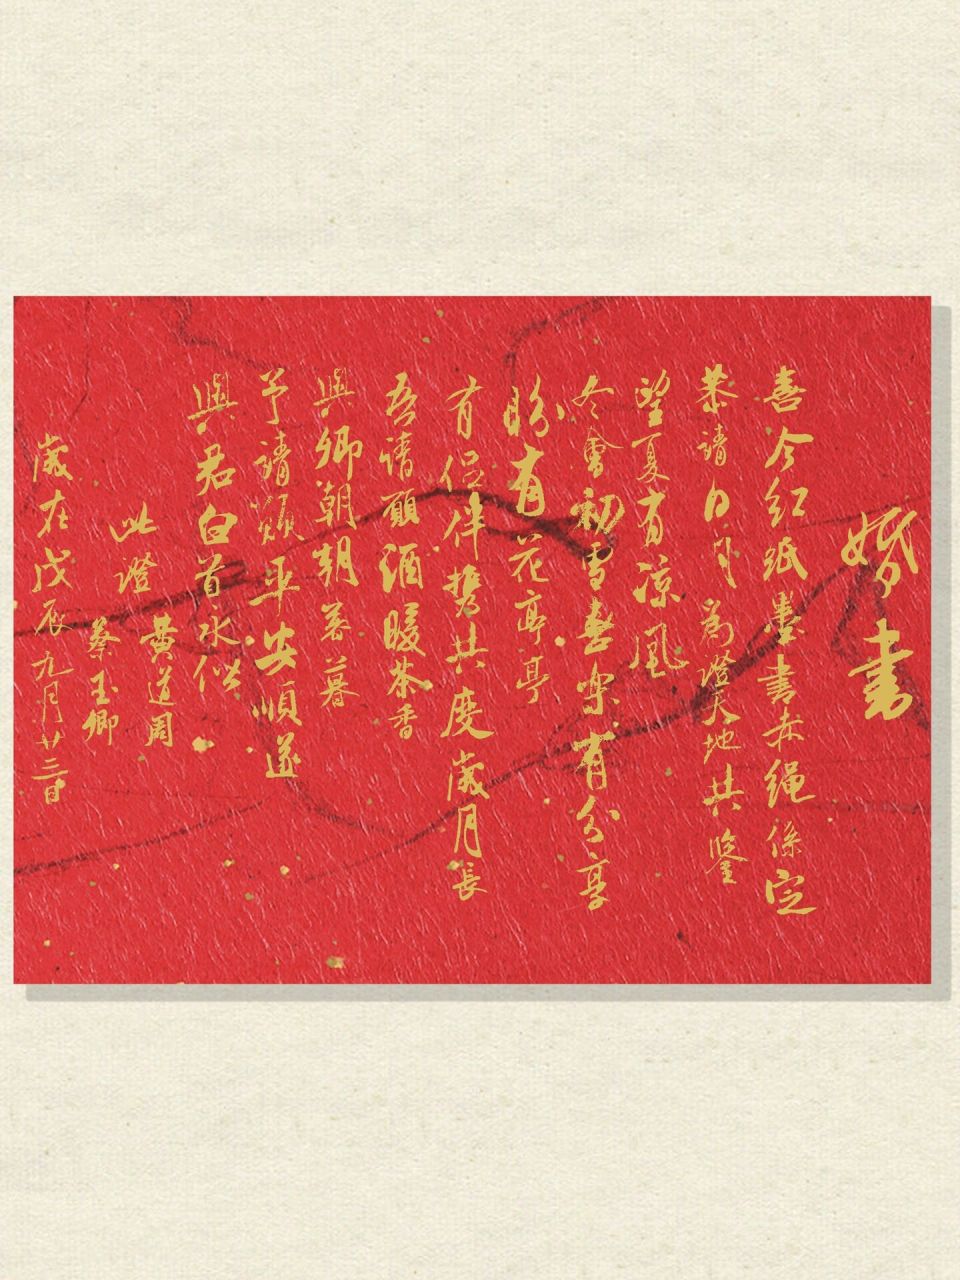 婚书
喜今红纸墨書赤绳係定
恭請日月為證天地共鑒
望夏有凉風
冬會初雪喜乐有分享
盼有花亭亭
有侣伴携共度歲月長
吾請願酒暖茶香
與卿朝朝暮暮
予請煩平安順遂
與君白首永偕
此證
黄道周
蔡玉卿
歲在戊辰九月廿三日